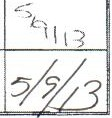 5/9/13
5/9/13